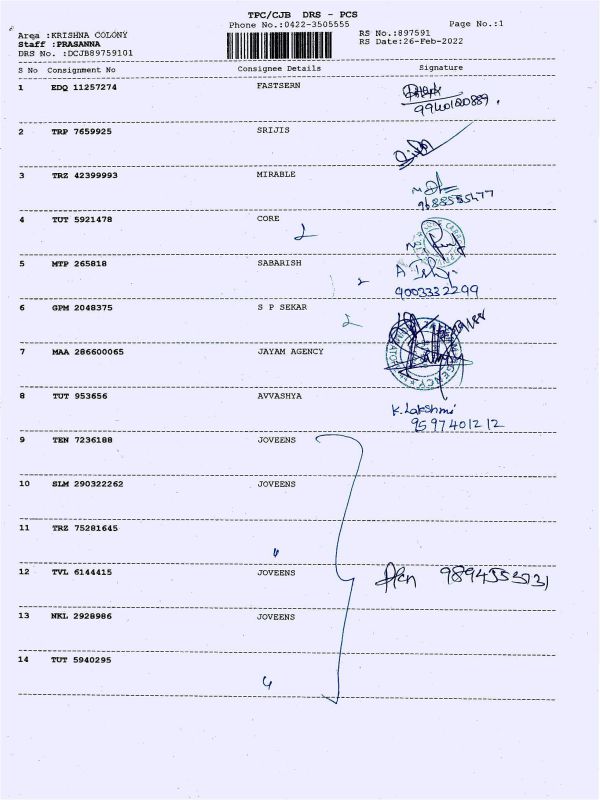 TPC/CJB DRS - PCS
Phone No.:0422-3505555 Page No.:1
Arqa :KRISHNA COLONY RS No.:897591
Staff :PRASANNA RS Date:26-Feb-2022
DRS No. :DCJB89759101
S No Consignment No Consignee Details Signature
1 EDQ 11257274 FASTSERN
2 TRP 7659925 SRIJIS
3 TRZ 42399993 MIRABLE
4 TUT 5921478 CORE
2
5 MTP 265818 SABARISH
2
9003332299
6 GPM 2048375 S P SEKAR
2
7 MAA 286600065 JAYAM AGENCY
8 TUT 953656 AVVASHYA
K. Lakshmi
9597401212
9 TEN 7236188 JOVEENS
10 SLM 290322262 JOVEENS
11 TRZ 75281645
12 TVL 6144415 JOVEENS
13 NKL 2928986 JOVEENS
14 TUT 5940295